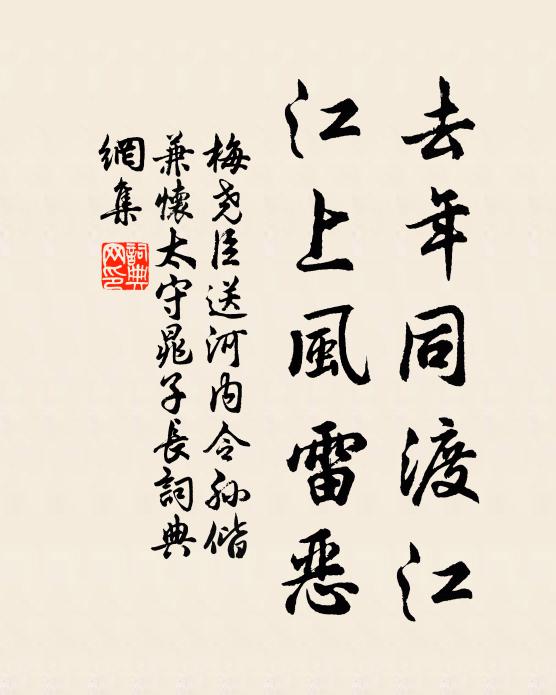 去年同渡江
江上風雷惡
梅堯臣送河内令孫偕
兼懷太守晁子長詞典
網集
詞典
网印